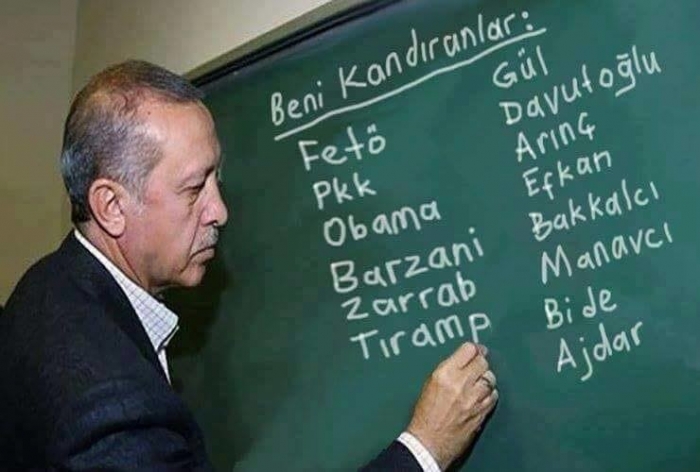 Beni Kandıranlar:
Fetö
Pkk
Obama
Barzani
Zarrab
Tıramp
Gül
Davutoğlu
Arınç
Efkan
Bakkalcı
Manavcı
Bi de
Ajdar